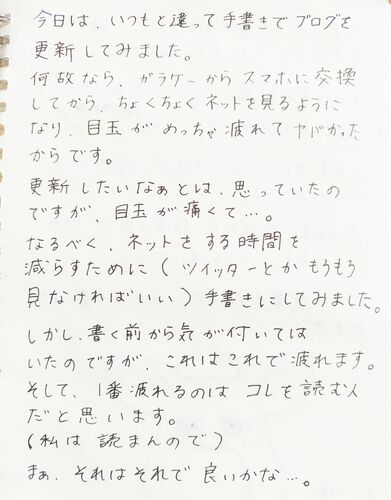 今日は、いつもと違って手書きでブログを
更新してみました。
何故なら、ガラケーからスマホに交換
してから、ちょくちょくネットを見るように
なり、目玉がめっちゃ疲れてヤバかった
からです。
更新したいなぁとは、思っていたの
ですが、目玉が痛くて…。
なるべく、ネットをする時間を
減らすために(ツイッターとかもうもう
見なければいい)手書きにしてみました。
しかし、書く前から気が付いては
いたのですが、これはこれで疲れます。
そして、1番疲れるのはコレを読む人
だと思います。
(私は読まんので)
まぁ、それはそれで良いかな…。